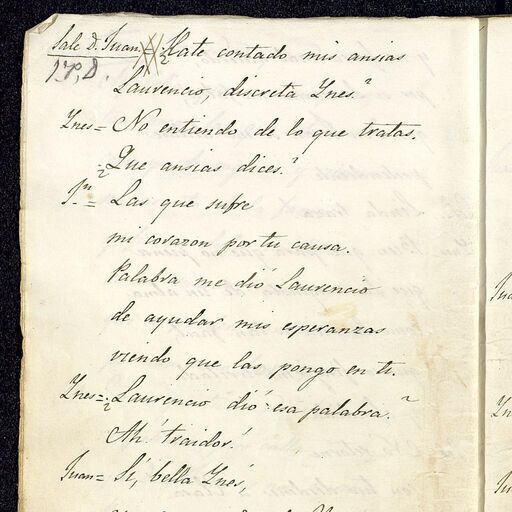 Sale D. Juan = ¿Hate contado mis ansias
Laurencio, discreta Ynes?
Ynes = No entiendo de lo que tratas.
¿Que ansias dices?
J.n = Las que sufre
mi corazon por tu causa.
Palabra me dió Laurencio
de ayudar mis esperanzas
viendo que las pongo en ti.
Ynes = ¿Laurencio dió esa palabra?
Ah! traidor!
Juan = Sí, bella Ynés,